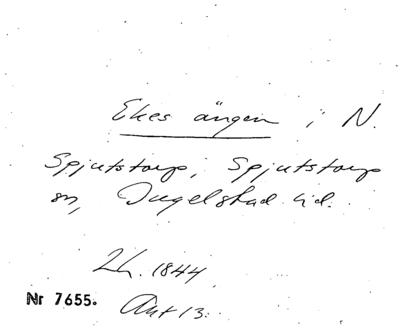 Ekes ängen i N.
Spjutstorp, Spjutstorp
sn, Ingelstad hd.
Lh. 1844
Nr 7655.
Akt 13.